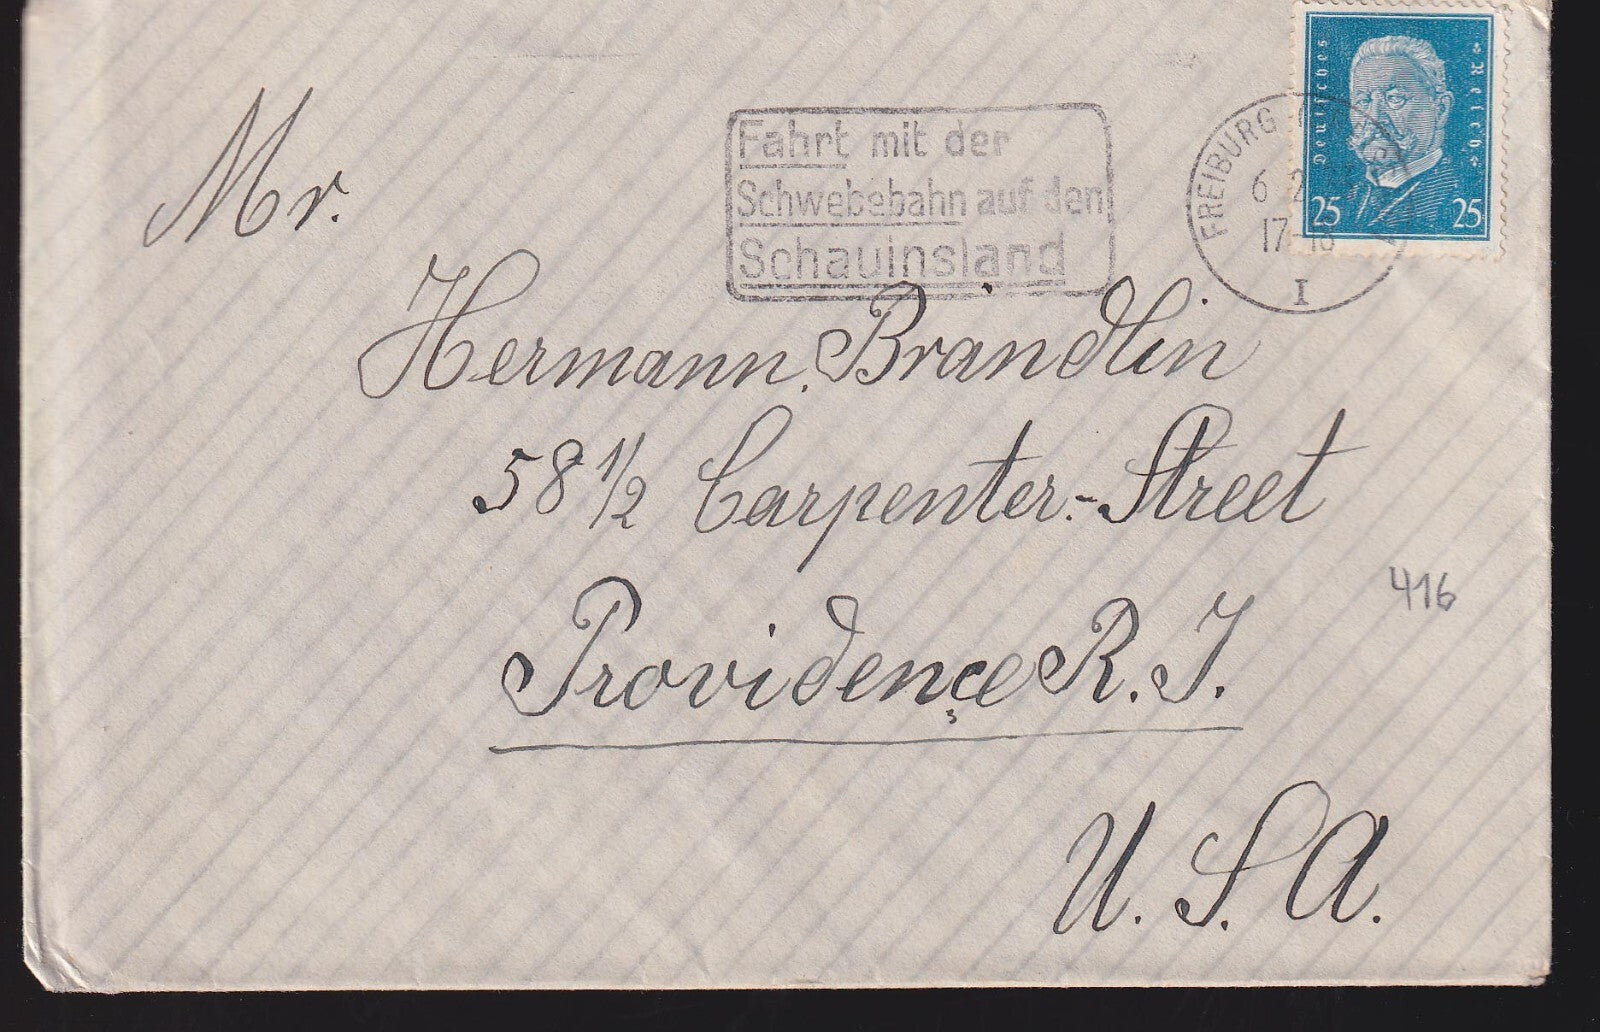 Deutsches Reich
25 25
FREIBURG
6 2
17-18
I
Fahrt mit der
Schwebebahn auf den
Schauinsland
Mr.
Hermann Brandlin
58 1/2 Carpenter-Street
Providence R. I.
U. S. A.
416